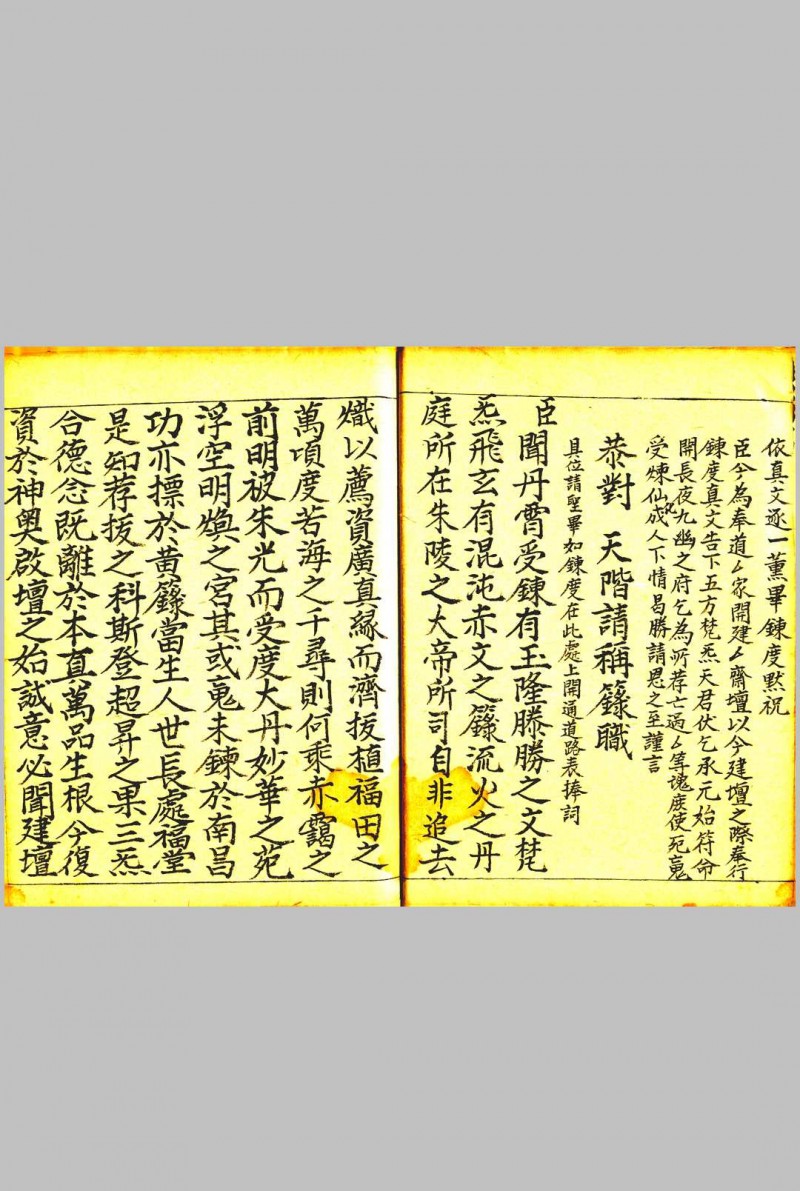 依真文逐一薰畢鍊度黙祝
臣今為奉道厶家開建厶齋壇以今建壇之際奉行
鍊度真文告下五方梵炁天君伏乞承元始符命
開長夜九幽之府乞為所荐亡過厶等魂庻使死䰟
受煉仙化成人下情曷勝請恩之至謹言
恭對　天階請稱籙職
具位請聖畢如鍊度在此處上開通道路表捧詞
臣
聞丹霄受鍊有玉隆滕勝之文梵
炁飛玄有混沌赤文之籙流火之丹
庭所在朱陵之大帝所司自非追去
熾以薦資廣真緣而濟拔植福田之
萬頃度苦海之千尋則何乘赤靄之
前明被朱光而受度大丹妙華之苑
浮空明煥之宮其或䰟未鍊於南昌
功亦摽於黄籙當生人世長處福堂
是知荐拔之科斯登超昇之果三炁
合德念既離於本真萬品生根今復
資於神奥啟壇之始誠意必聞建壇